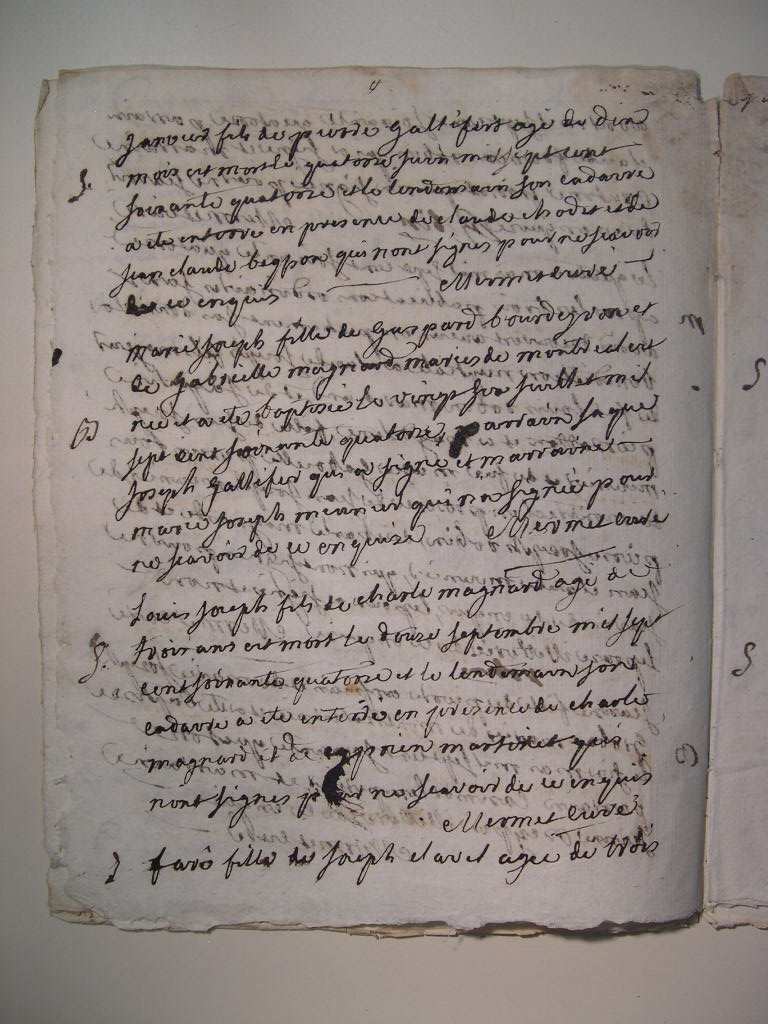 4
Janvier fils de pierre Gallifert agé de dix
mois est mort le quatorze juin mil sept cent
S. soixante quatorze et le lendemain son cadavre
a ete enterre en presence de claude chodet et de
jean claude beppon qui nont signes pour ne scavoir
de ce enquis Mermet curé
marie Joseph fille de Gaspard bourdeyron et
de Gabrielle magnard maries de est
nee et a ete baptisée le vingt six juillet mil
B sept cent soixante quatorze, parrain jaque
Joseph Gallifer qui a signé et marraine
marie Joseph meunier qui na signée pour
ne scavoir de ce enquize Mermet curé
Louis Joseph fils de charle magnard agé de
trois ans est mort le douze septembre mil sept
S. cent soixante quatorze et le lendemain son
cadavre a ete enterré en presence de charle
magnard et de martinet qui
nont signes pour ne scavoir de ce enquis
Mermet curé
fille de Joseph clavel agée de trois